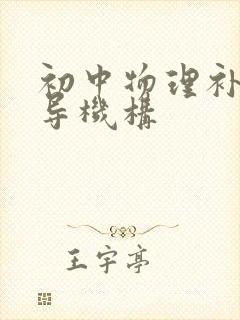 初中物理补
导機構
王宇亭